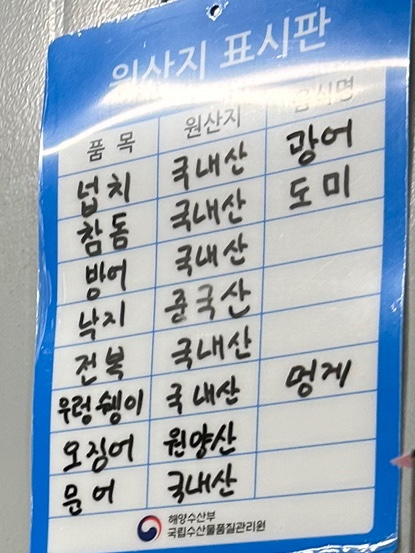 원산지 표시판
품 목 원산지 음식명
넙치 국내산 광어
참돔 국내산 도미
방어 국내산
낙지 중국산
전복 국내산
우렁쉥이 국내산 멍게
오징어 원양산
문어 국내산
해양수산부
국립수산물품질관리원